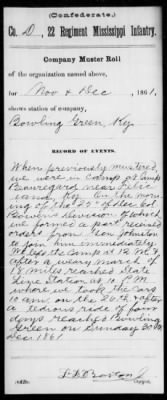 (Confederate.)
Co. D, 22 Regiment Mississippi Infantry.
Company Muster Roll
of the organization named above,
for Nov & Dec, 1861.
shows station of company,
Bowling Green, Ky.
RECORD OF EVENTS.
When previously mustered
we were in Camp at Camp
Beauregard near Feli-
ciana, Ky. On the morn-
ing of the 25th of Dec. Col
Bowen's Division of which
we formed a part received
orders from Gen Johnston
to join him immediately
We left Camp at 12 M. &
after a weary march of
18 miles reached State
Line Station at 10 P.M.
where we took the cars
10 a.m. on the 26th & after
a tedious ride of four
days reached Bowling
Green on Sunday 30th
Dec 1861